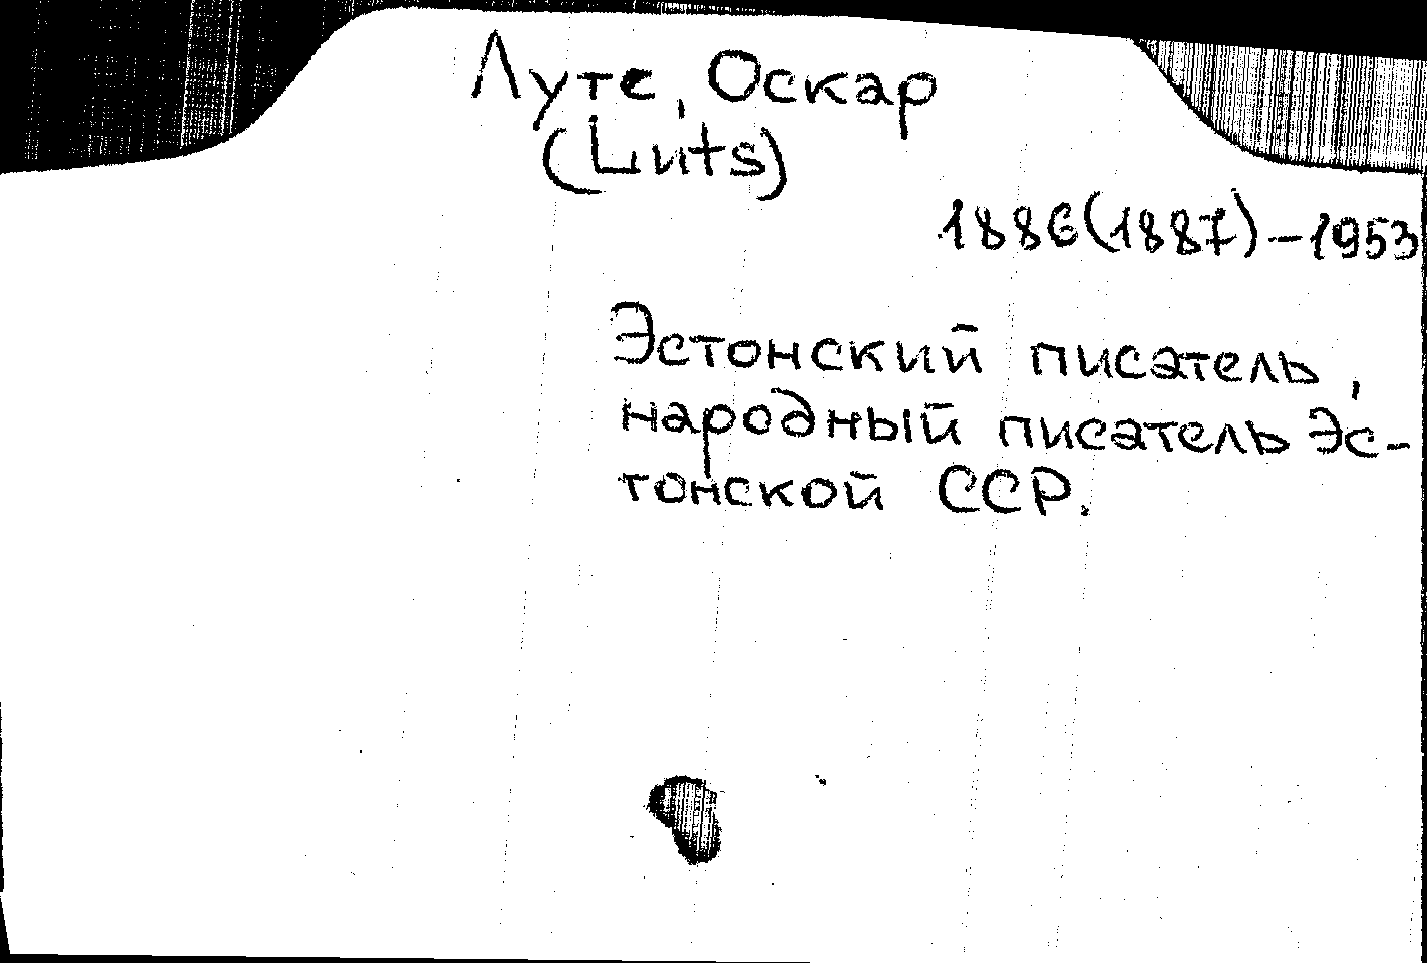 Луте, Оскар
(Luts)
1886(1887)-1953
Эстонский писатель,
народный писатель Эс-
тонской ССР.